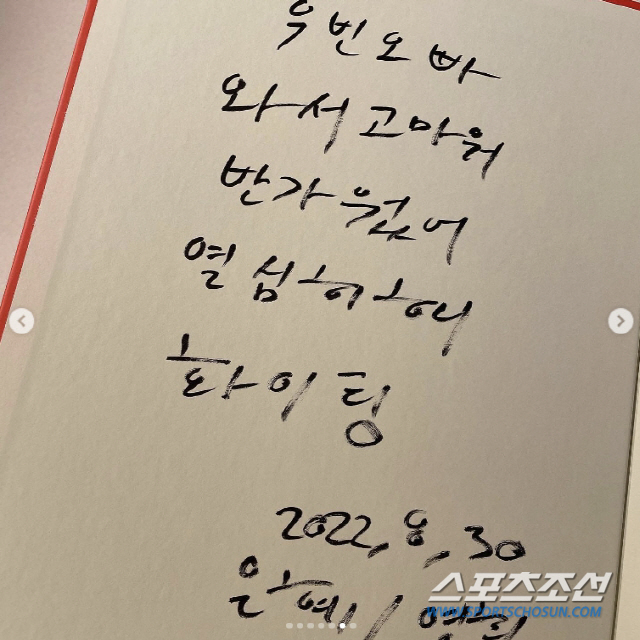 우빈오빠
와서 고마워
반가웠어
열심히 하여
화이팅
2022, 8, 30
은혜 / 영희
스포츠조선
WWW.SPORTSCHOSUN.COM